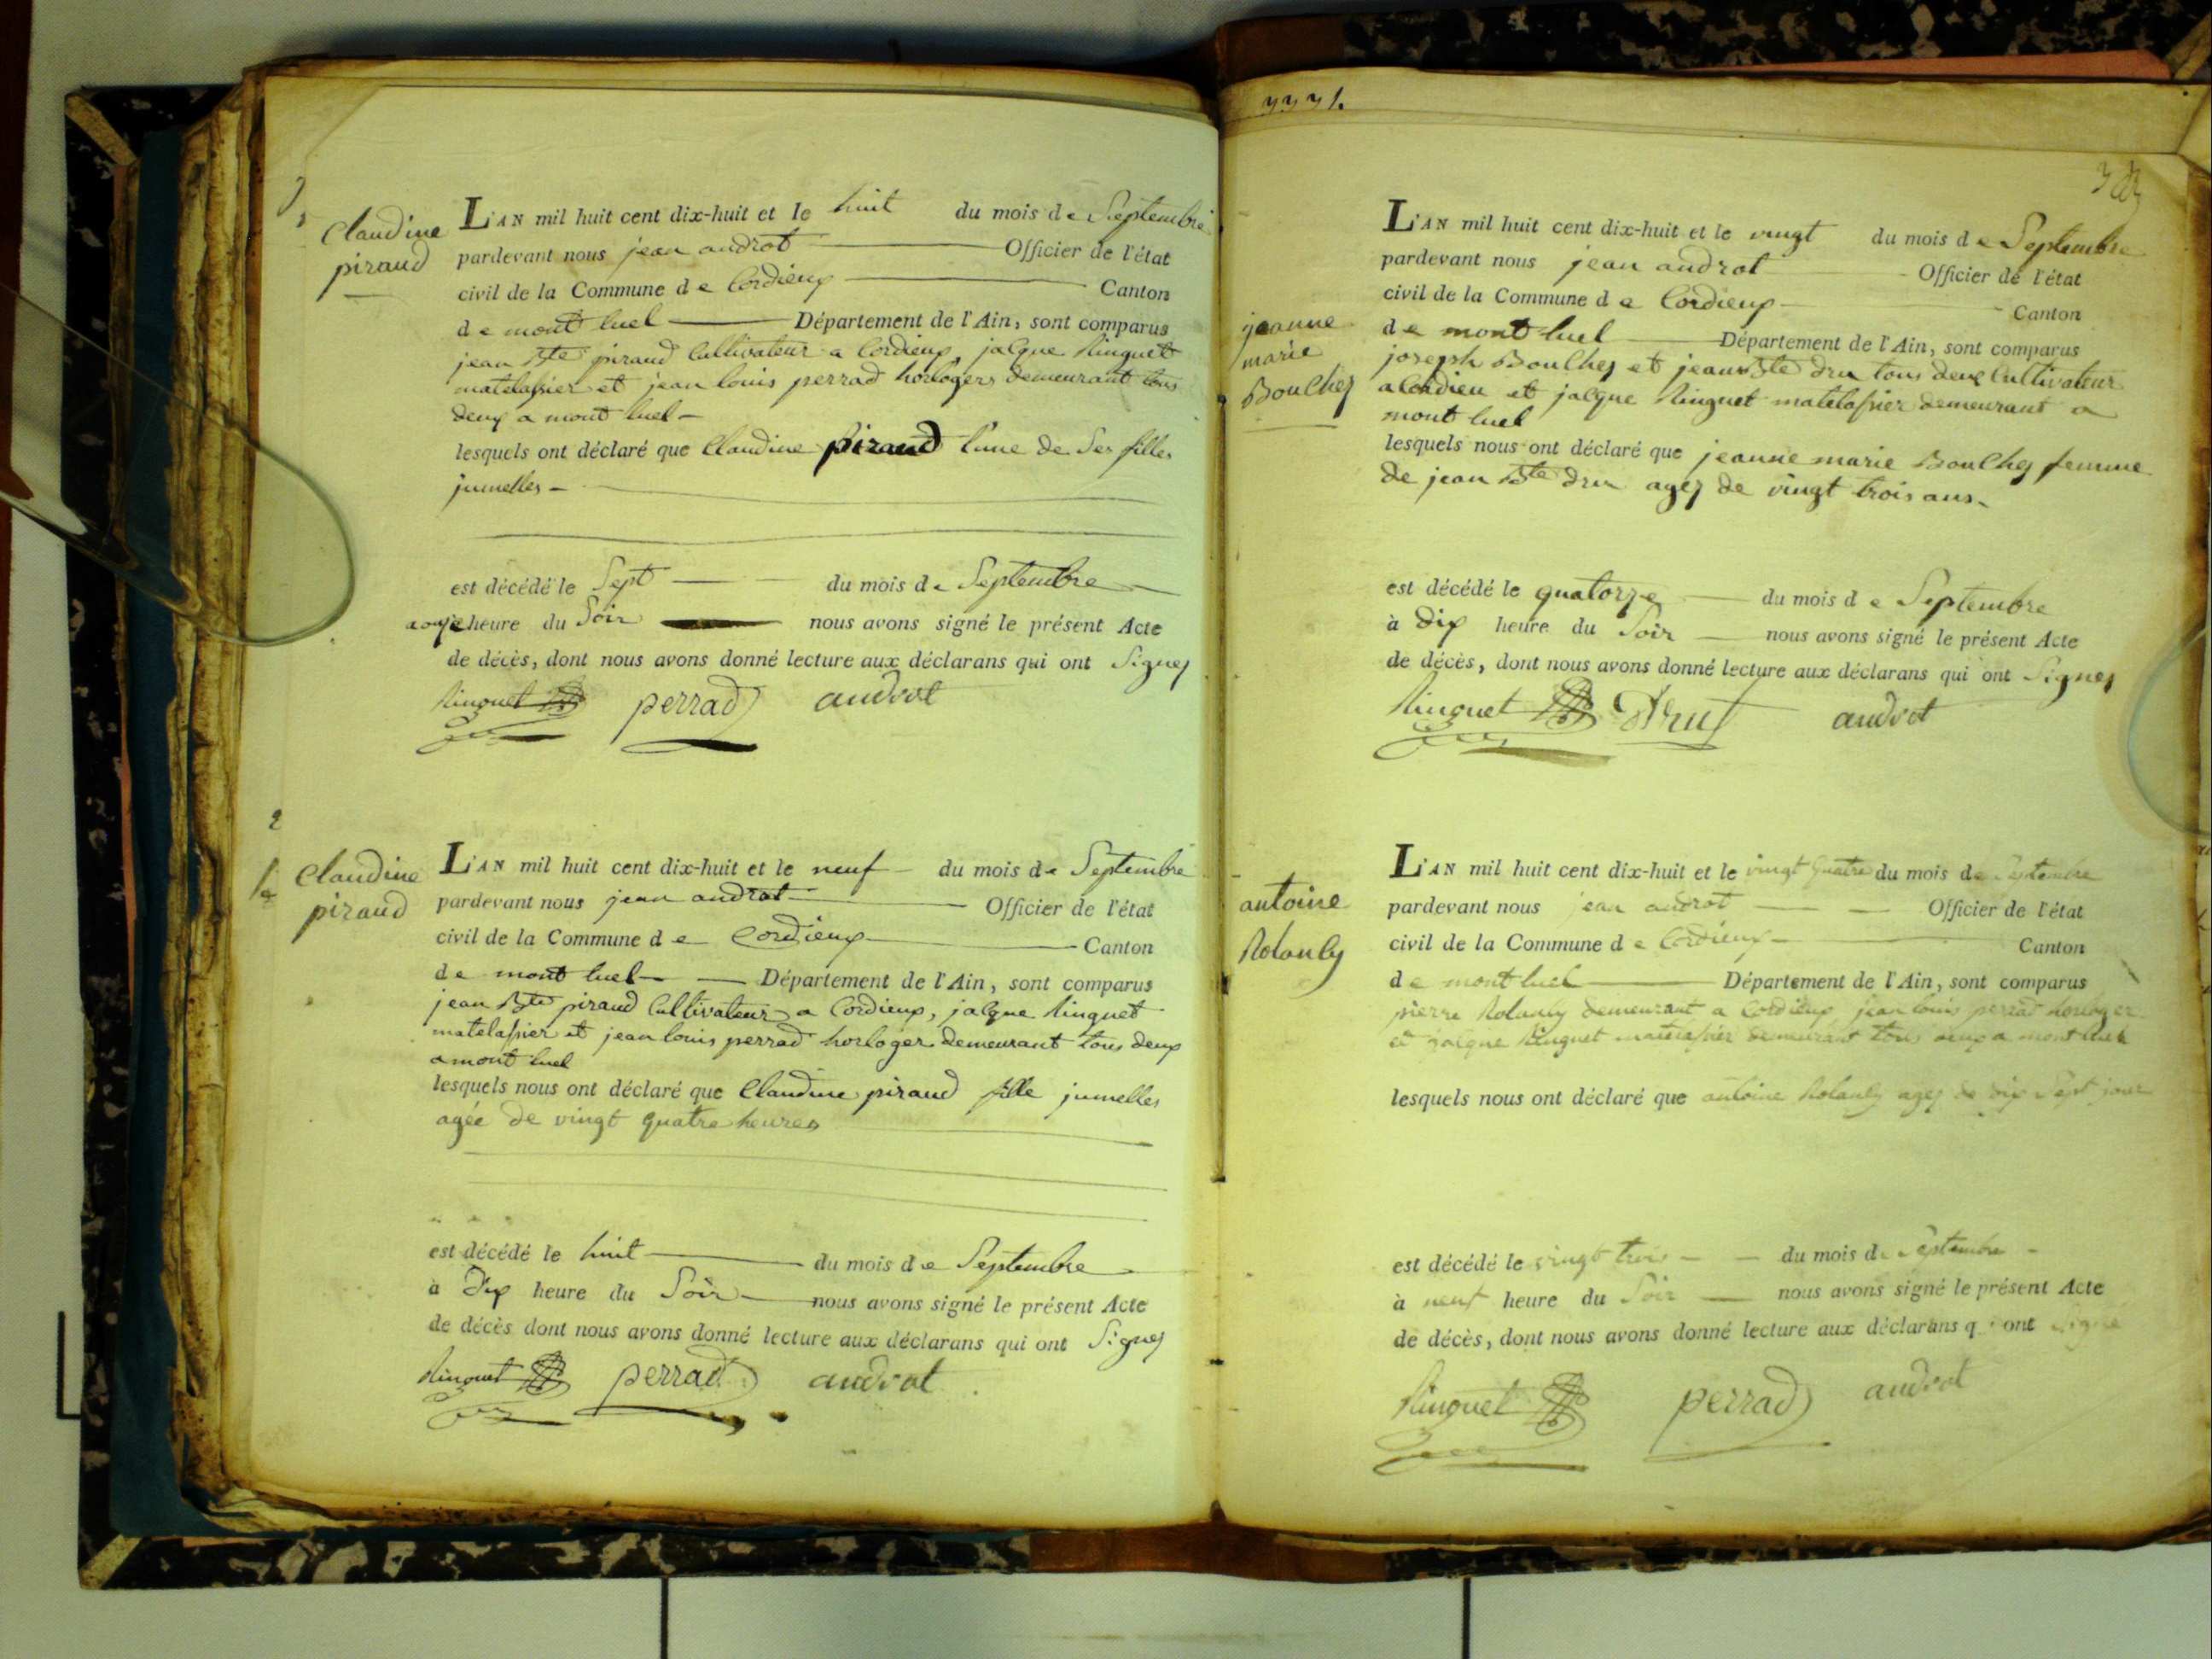 Claudine
piraud
L'AN mil huit cent dix-huit et le huit du mois de Septembre
pardevant nous jean androt Officier de l'état
civil de la Commune de Cordieux Canton
de mont luel Département de l'Ain, sont comparus
jean Bte piraud Cultivateur a Cordieux, jacque Ringuet
matelassier et jean louis perrad horlogers demeurant tous
deux a mont luel
lesquels ont déclaré que Claudine piraud l'une de Ses filles
jumelles
est décédé le Sept du mois de Septembre
a onze heure du Soir nous avons signé le présent Acte
de décès, dont nous avons donné lecture aux déclarans qui ont Signez
Ringuet perrad androt
2
Claudine
piraud
L'AN mil huit cent dix-huit et le neuf du mois de Septembre
pardevant nous jean androt Officier de l'état
civil de la Commune de Cordieux Canton
de mont luel Département de l'Ain, sont comparus
jean Bte piraud Cultivateur a Cordieux, jacque Ringuet
matelassier et jean louis perrad horloger demeurant tous deux
a mont luel
lesquels nous ont déclaré que Claudine piraud fille jumelles
agée de vingt quatre heures
est décédé le huit du mois de Septembre
à Dix heure du Soir nous avons signé le présent Acte
de décès dont nous avons donné lecture aux déclarans qui ont Signez
Ringuet perrad androt
jeanne
marie
Boulchez
L'AN mil huit cent dix-huit et le vingt du mois de Septembre
pardevant nous jean androt Officier de l'état
civil de la Commune de Cordieux Canton
de mont luel Département de l'Ain, sont comparus
joseph Boulchez et jean Bte dru tous deux Cultivateur
a Cordieu et jacque Ringuet matelassier demeurant a
mont luel
lesquels nous ont déclaré que jeanne marie Boulchez femme
de jean Bte dru agez de vingt trois ans
est décédé le quatorze du mois de Septembre
à Dix heure du Soir nous avons signé le présent Acte
de décès, dont nous avons donné lecture aux déclarans qui ont Signez
Ringuet Dru androt
antoine
Rolanly
L'AN mil huit cent dix-huit et le vingt quatre du mois de Septembre
pardevant nous jean androt Officier de l'état
civil de la Commune de Cordieux Canton
de mont luel Département de l'Ain, sont comparus
pierre Rolanly demeurant a Cordieux, jean louis perrad horloger
et jacque Ringuet matelassier demeurant tous deux a mont luel
lesquels nous ont déclaré que antoine Rolanly agez de dix Sept jour
est décédé le vingt trois du mois de Septembre
à neuf heure du Soir nous avons signé le présent Acte
de décès, dont nous avons donné lecture aux déclarans qui ont Signé
Ringuet perrad androt